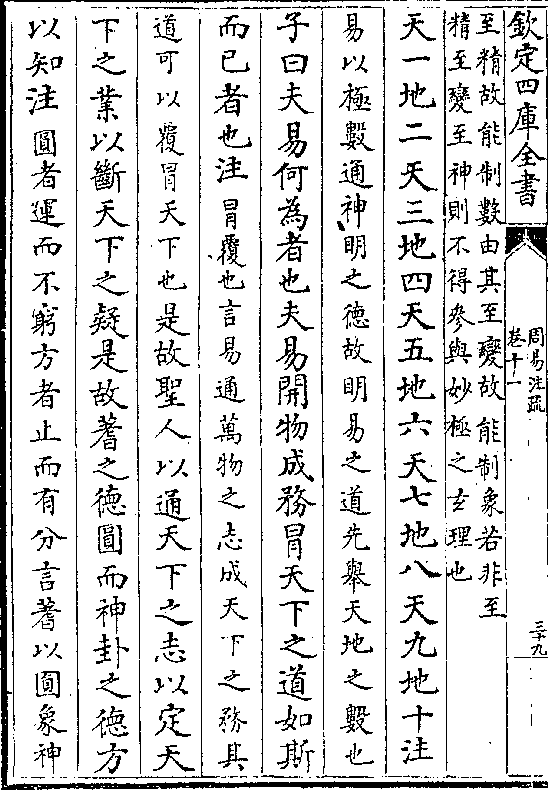 欽定四庫全書
周易注疏
卷十一
三十九
至精故能制數由其至變故能制象若非至
精至變至神則不得參與妙極之玄理也
天一地二天三地四天五地六天七地八天九地十注
易以極數通神明之德故明易之道先舉天地之數也
子曰夫易何為者也夫易開物成務冒天下之道如斯
而已者也注冒覆也言易通萬物之志成天下之務其
道可以覆冒天下也是故聖人以通天下之志以定天
下之業以斷天下之疑是故蓍之德圓而神卦之德方
以知注圓者運而不窮方者止而有分言蓍以圓象神